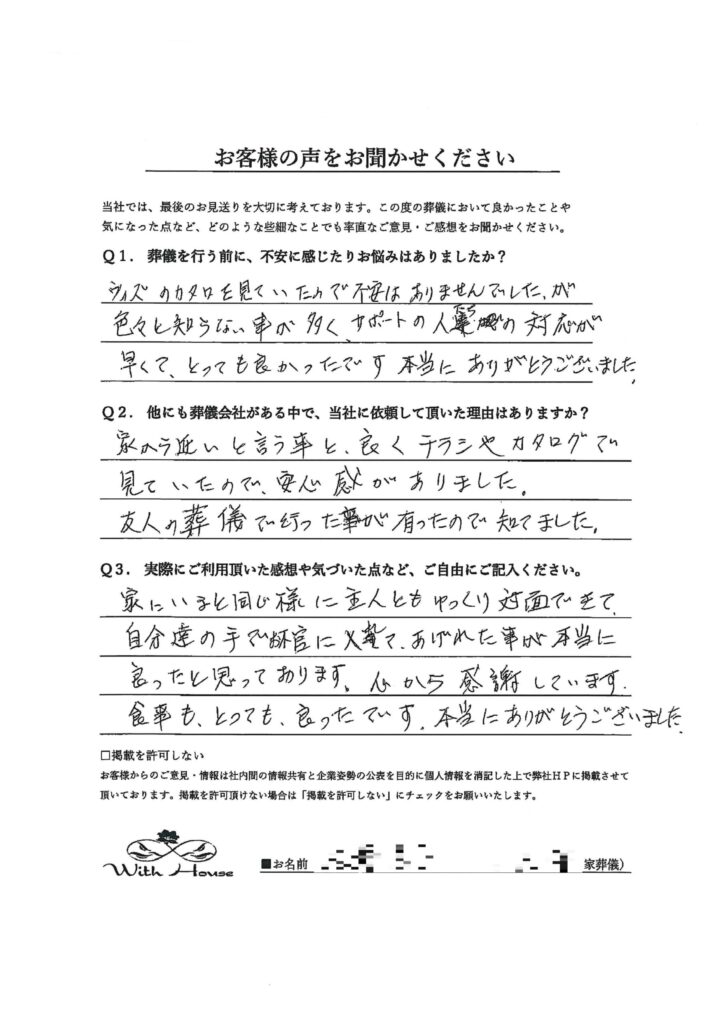 お客様の声をお聞かせください
当社では、最後のお見送りを大切に考えております。この度の葬儀において良かったことや
気になった点など、どのような些細なことでも率直なご意見・ご感想をお聞かせください。
Q1. 葬儀を行う前に、不安に感じたりお悩みはありましたか？
ウィズのカタログを見ていたので不安はありませんでしたが
色々と知らない事が多く、サポートの人達の対応が
早くて、とっても良かったです 本当にありがとうございました
Q2. 他にも葬儀会社がある中で、当社に依頼して頂いた理由はありますか？
家から近いと言う事と、良くチラシやカタログで
見ていたので、安心感がありました。
友人の葬儀で行った事が有ったので知てました。
Q3. 実際にご利用頂いた感想や気づいた点など、ご自由にご記入ください。
家にいると同じ様に主人ともゆっくり対面できて、
自分達の手で棺に入て、あげれた事が本当に
良ったと思っております、心から感謝しています。
食事も、とっても、良ったです。本当にありがとうございました
□掲載を許可しない
お客様からのご意見・情報は社内間の情報共有と企業姿勢の公表を目的に個人情報を消記した上で弊社HPに掲載させて
頂いております。掲載を許可頂けない場合は「掲載を許可しない」にチェックをお願いいたします。
With House
■お名前 家葬儀）